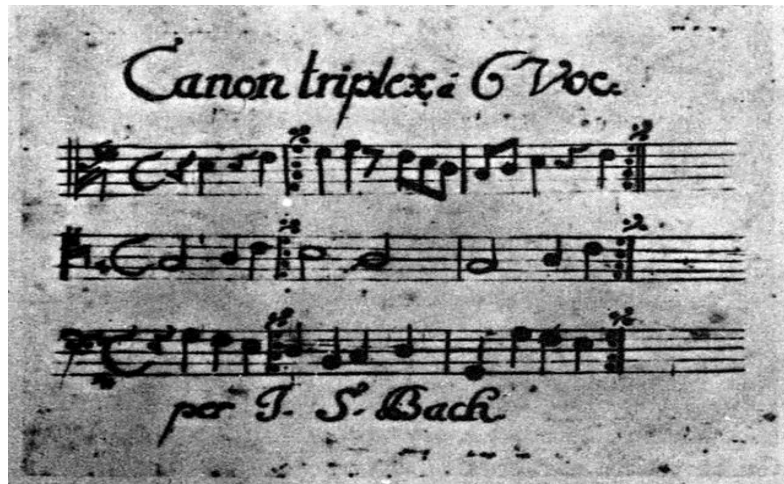 Canon triplex á 6 Voc:
per J. S. Bach